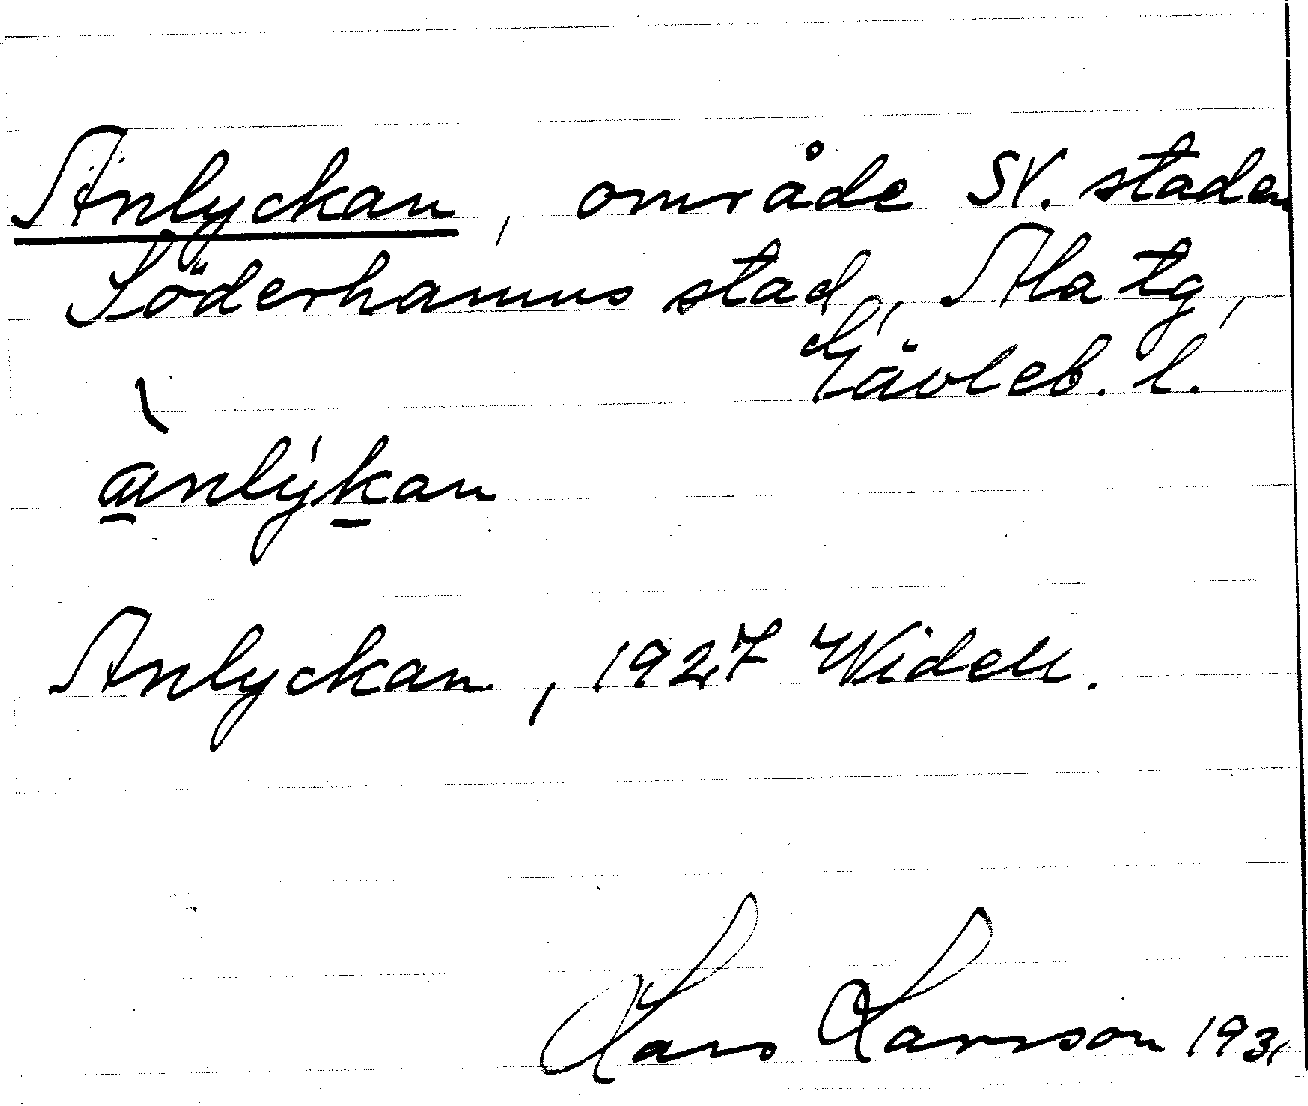 Anlyckan, område SV. staden
Söderhamns stad, Ala tg,
Gävleb. l.
ànlýkan
Anlyckan, 1927 Widell.
Hans Larsson 1931